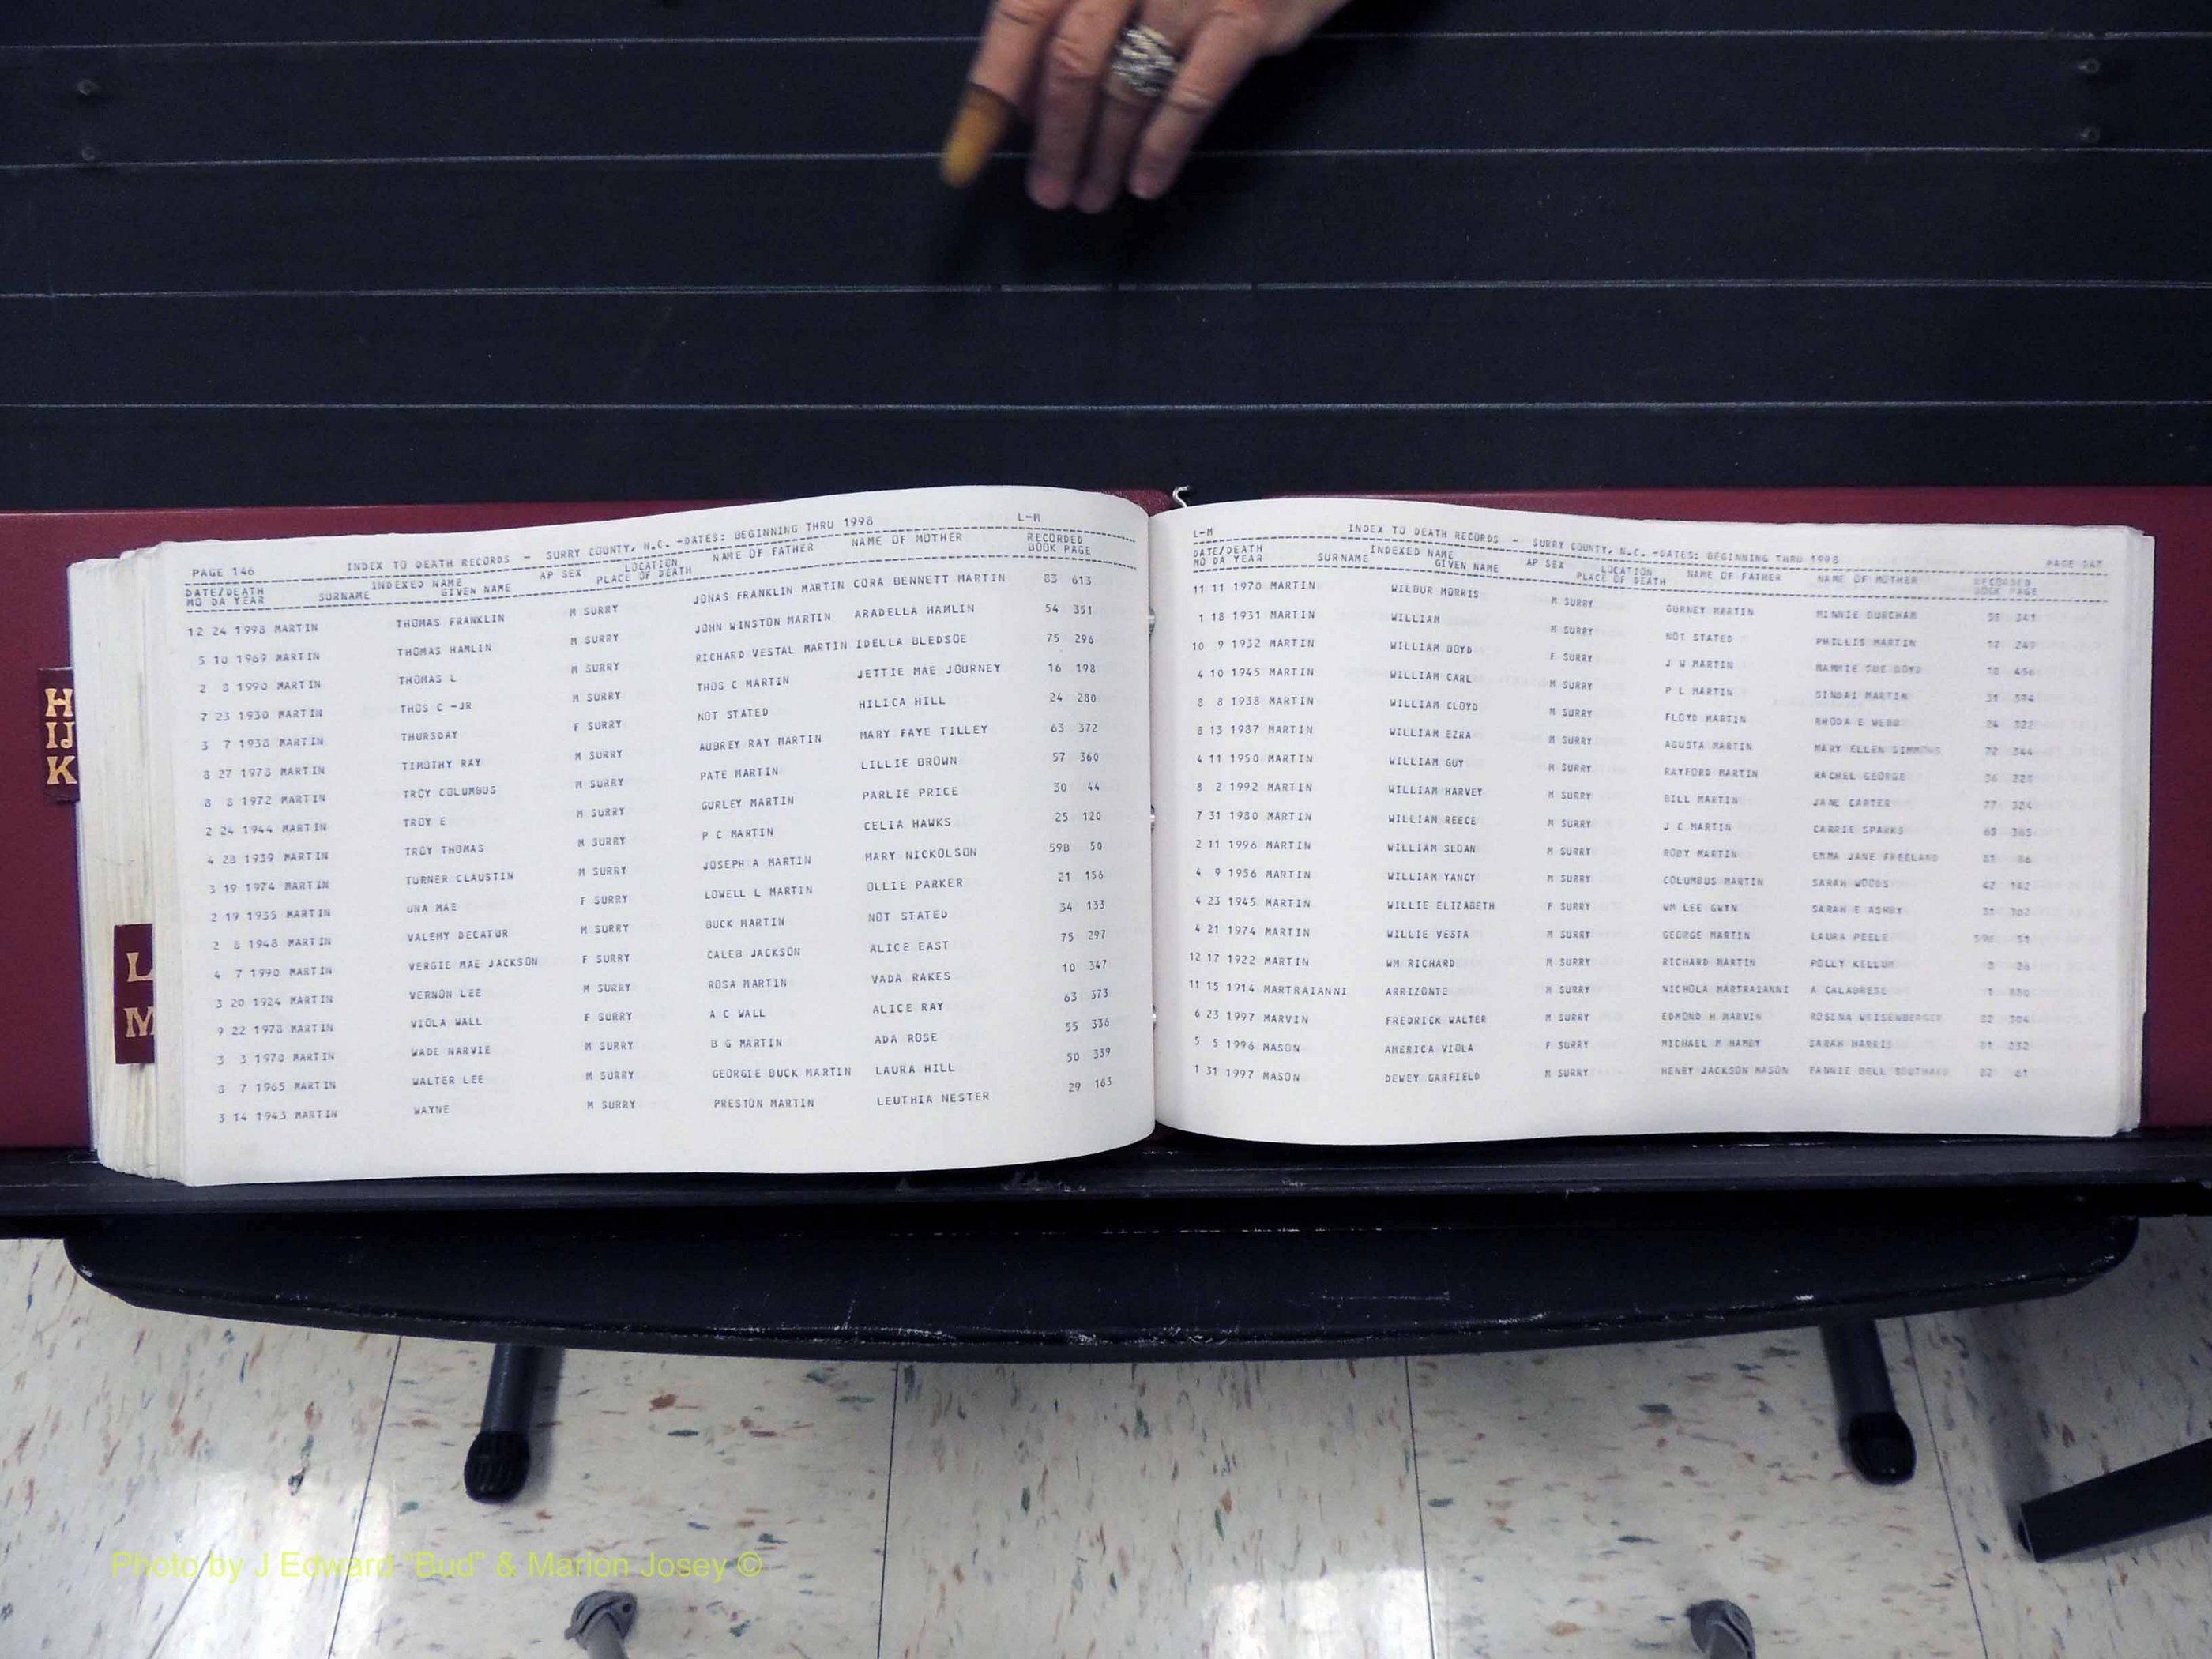 PAGE 146 INDEX TO DEATH RECORDS - SURRY COUNTY, N.C. -DATES: BEGINNING THRU 1998 L-M
DATE/DEATH INDEXED NAME LOCATION NAME OF FATHER NAME OF MOTHER RECORDED
MO DA YEAR SURNAME GIVEN NAME AP SEX PLACE OF DEATH BOOK PAGE
12 24 1998 MARTIN THOMAS FRANKLIN M SURRY JONAS FRANKLIN MARTIN CORA BENNETT MARTIN 83 613
5 10 1969 MARTIN THOMAS HAMLIN M SURRY JOHN WINSTON MARTIN ARADELLA HAMLIN 54 351
2 8 1990 MARTIN THOMAS L M SURRY RICHARD VESTAL MARTIN IDELLA BLEDSOE 75 296
7 23 1930 MARTIN THOS C -JR M SURRY THOS C MARTIN JETTIE MAE JOURNEY 16 198
3 7 1938 MARTIN THURSDAY F SURRY NOT STATED HILICA HILL 24 280
8 27 1978 MARTIN TIMOTHY RAY M SURRY AUBREY RAY MARTIN MARY FAYE TILLEY 63 372
8 8 1972 MARTIN TROY COLUMBUS M SURRY PATE MARTIN LILLIE BROWN 57 360
2 24 1944 MARTIN TROY E M SURRY GURLEY MARTIN PARLIE PRICE 30 44
4 28 1939 MARTIN TROY THOMAS M SURRY P C MARTIN CELIA HAWKS 25 120
3 19 1974 MARTIN TURNER CLAUSTIN M SURRY JOSEPH A MARTIN MARY NICKOLSON 59B 50
2 19 1935 MARTIN UNA MAE F SURRY LOWELL L MARTIN OLLIE PARKER 21 156
2 8 1948 MARTIN VALEMY DECATUR M SURRY BUCK MARTIN NOT STATED 34 133
4 7 1990 MARTIN VERGIE MAE JACKSON F SURRY CALEB JACKSON ALICE EAST 75 297
3 20 1924 MARTIN VERNON LEE M SURRY ROSA MARTIN VADA RAKES 10 347
9 22 1978 MARTIN VIOLA WALL F SURRY A C WALL ALICE RAY 63 373
3 3 1970 MARTIN WADE NARVIE M SURRY B G MARTIN ADA ROSE 55 336
8 7 1965 MARTIN WALTER LEE M SURRY GEORGIE BUCK MARTIN LAURA HILL 50 339
3 14 1943 MARTIN WAYNE M SURRY PRESTON MARTIN LEUTHIA NESTER 29 163
L-M INDEX TO DEATH RECORDS - SURRY COUNTY, N.C. -DATES: BEGINNING THRU 1998 PAGE 147
DATE/DEATH INDEXED NAME LOCATION NAME OF FATHER NAME OF MOTHER RECORDED
MO DA YEAR SURNAME GIVEN NAME AP SEX PLACE OF DEATH BOOK PAGE
11 11 1970 MARTIN WILBUR MORRIS M SURRY GURNEY MARTIN MINNIE BURCHAM 55 341
1 18 1931 MARTIN WILLIAM M SURRY NOT STATED PHILLIS MARTIN 17 249
10 9 1932 MARTIN WILLIAM BOYD F SURRY J W MARTIN MAMMIE SUE BOYD 18 456
4 10 1945 MARTIN WILLIAM CARL M SURRY P L MARTIN SINDAI MARTIN 31 394
8 8 1938 MARTIN WILLIAM CLOYD M SURRY FLOYD MARTIN RHODA E WEBB 24 322
8 13 1987 MARTIN WILLIAM EZRA M SURRY AGUSTA MARTIN MARY ELLEN SIMMONS 72 344
4 11 1950 MARTIN WILLIAM GUY M SURRY RAYFORD MARTIN RACHEL GEORGE 36
8 2 1992 MARTIN WILLIAM HARVEY M SURRY BILL MARTIN JANE CARTER 77 324
7 31 1980 MARTIN WILLIAM REECE M SURRY J C MARTIN CARRIE SPARKS 65 365
2 11 1996 MARTIN WILLIAM SLOAN M SURRY ROBY MARTIN EMMA JANE FREELAND 81 86
4 9 1956 MARTIN WILLIAM YANCY M SURRY COLUMBUS MARTIN SARAH WOODS 42 142
4 23 1945 MARTIN WILLIE ELIZABETH F SURRY WM LEE GWYN SARAH E ASHBY 31 302
4 21 1974 MARTIN WILLIE VESTA M SURRY GEORGE MARTIN LAURA PEELE 59B 51
12 17 1922 MARTIN WM RICHARD M SURRY RICHARD MARTIN POLLY KELLUM 26
11 15 1914 MARTRAIANNI ARRIZONTE M SURRY NICHOLA MARTRAIANNI A CALABRESE 1
6 23 1997 MARVIN FREDRICK WALTER M SURRY EDMOND H MARVIN ROSINA WEISENBERGER 82 304
5 5 1996 MASON AMERICA VIOLA F SURRY MICHAEL M HAMBY SARAH HARRIS 81 232
1 31 1997 MASON DEWEY GARFIELD M SURRY HENRY JACKSON MASON FANNIE BELL SOUTHARD 82 61
H
IJ
K
L
M
Photo by J Edward "Bud" & Marion Josey ©